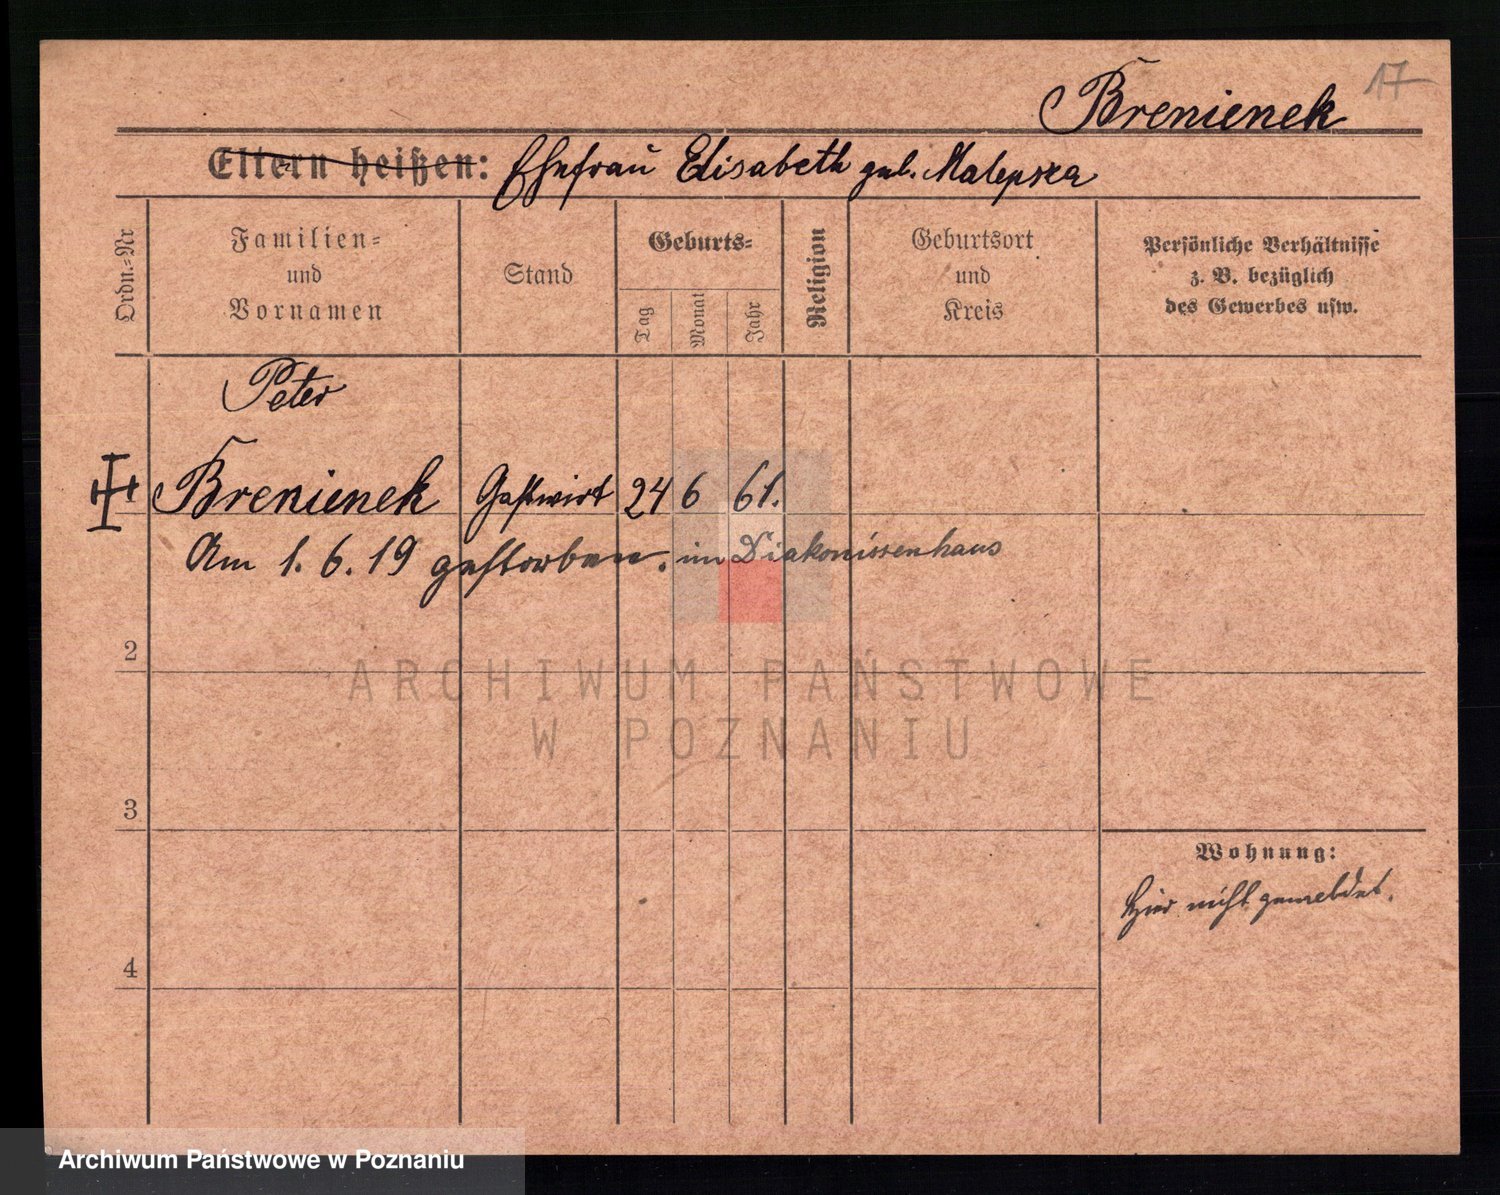 17
Brenienek
Eltern heißen: Ehefrau Elisabeth geb. Malepska
Ordn.=Nr
Familien=
und
Vornamen
Stand
Geburts=
Tag
Monat
Jahr
Religion
Geburtsort
und
Kreis
Persönliche Verhältnisse
z. B. bezüglich
des Gewerbes usw.
Peter
Brenienek Gastwirt 24 6 61.
Am 1. 6. 19 gestorben. im Diakonissenhaus
2
3
4
Wohnung:
hier nicht gemeldet.
ARCHIWUM PAŃSTWOWE
W POZNANIU
Archiwum Państwowe w Poznaniu